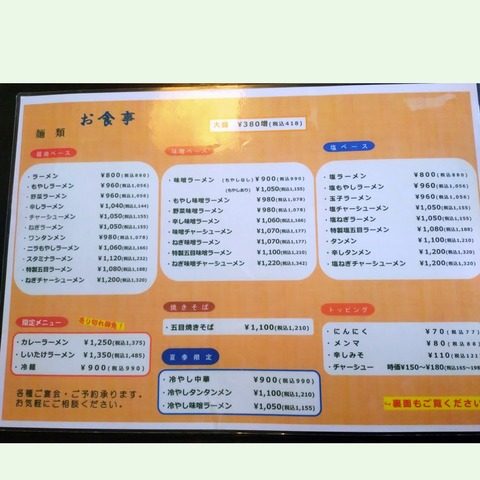 お食事
麺類
大盛 ¥380増(税込418)
醤油ベース
・ラーメン ¥800(税込880)
・もやしラーメン ¥960(税込1,056)
・野菜ラーメン ¥960(税込1,056)
・辛しラーメン ¥1,040(税込1,144)
・チャーシューメン ¥1,050(税込1,155)
・ねぎラーメン ¥1,050(税込1,155)
・ワンタンメン ¥980(税込1,078)
・ニラもやしラーメン ¥1,060(税込1,166)
・スタミナラーメン ¥1,120(税込1,232)
・特製五目ラーメン ¥1,080(税込1,188)
・ねぎチャーシューメン ¥1,200(税込1,320)
味噌ベース
・味噌ラーメン (もやしなし) ¥900(税込990)
(もやしあり) ¥1,050(税込1,155)
・もやし味噌ラーメン ¥980(税込1,078)
・野菜味噌ラーメン ¥980(税込1,078)
・辛し味噌ラーメン ¥1,060(税込1,166)
・味噌チャーシューメン ¥1,070(税込1,177)
・ねぎ味噌ラーメン ¥1,070(税込1,177)
・特製五目味噌ラーメン ¥1,100(税込1,210)
・ねぎ味噌チャーシューメン ¥1,220(税込1,342)
塩ベース
・塩ラーメン ¥800(税込880)
・塩もやしラーメン ¥960(税込1,056)
・玉子ラーメン ¥960(税込1,056)
・塩チャーシューメン ¥1,050(税込1,155)
・塩ねぎラーメン ¥1,050(税込1,155)
・特製塩五目ラーメン ¥1,080(税込1,188)
・タンメン ¥1,100(税込1,210)
・辛しタンメン ¥1,200(税込1,320)
・塩ねぎチャーシューメン ¥1,200(税込1,320)
限定メニュー 売り切れ御免!
・カレーラーメン ¥1,250(税込1,375)
・しいたけラーメン ¥1,350(税込1,485)
・冷麺 ¥900(税込990)
焼きそば
・五目焼きそば ¥1,100(税込1,210)
夏季限定
・冷やし中華 ¥900(税込990)
・冷やしタンタンメン ¥1,100(税込1,210)
・冷やし味噌ラーメン ¥1,050(税込1,155)
トッピング
・にんにく ¥70(税込77
・メンマ ¥80(税込88
・辛しみそ ¥110(税込121
・チャーシュー 時価¥150～¥180(税込165～198
各種ご宴会・ご予約承ります。
お気軽にご相談ください。
～裏面もご覧ください